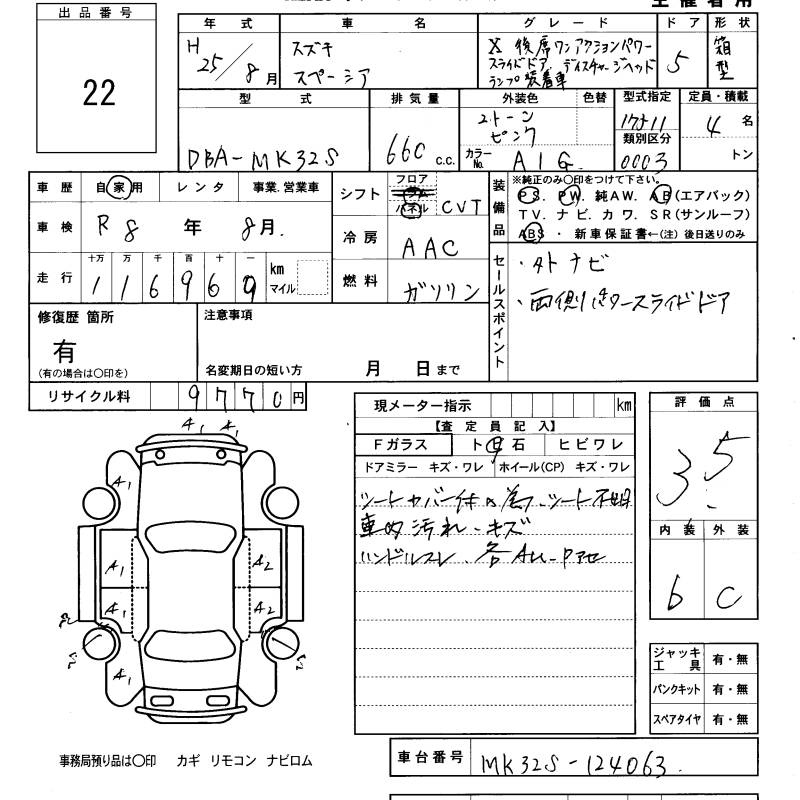 主催者用
出品番号
22
年式 車名 グレード ドア 形状
H 25/8月
スズキ
スペーシア
X 後席ワンアクションパワー
スライドドア、ディスチャージヘッド
ランプ装着車
5
箱型
型式 排気量 外装色 色替 型式指定 定員・積載
DBA-MK32S
660 c.c.
2トーン
ピンク
カラーNo. A1G
17511
類別区分
0003
4名
トン
車歴 自家用 レンタ 事業.営業車
シフト フロア コラム パネル CVT
装備品
※純正のみ〇印をつけて下さい。
PS. PW. 純AW. AB(エアバック)
TV. ナビ. カワ. SR(サンルーフ)
ABS ・ 新車保証書←(注) 後日送りのみ
車検 R8年 8月.
冷房 AAC
走行 十万 万 千 百 十 一
116969 km マイル
燃料 ガソリン
セールスポイント
・外ナビ
・両側パワースライドドア
修復歴 箇所
有
(有の場合は〇印を)
注意事項
名変期日の短い方 月 日まで
リサイクル料 9770円
現メーター指示 km
【査定員記入】
Fガラス ト飛石 ヒビワレ
ドアミラー キズ・ワレ ホイール(CP) キズ・ワレ
シートカバー付の為、シート不明
車内汚れ・キズ
ハンドルスレ、各AU-Pアセ
評価点
3.5
内装 外装
6 C
A1 A1
A1
A1 A2
A1 A2
A1
ジャッキ工具 有・無
パンクキット 有・無
スペアタイヤ 有・無
事務局預り品は〇印 カギ リモコン ナビロム
車台番号 MK32S-124063